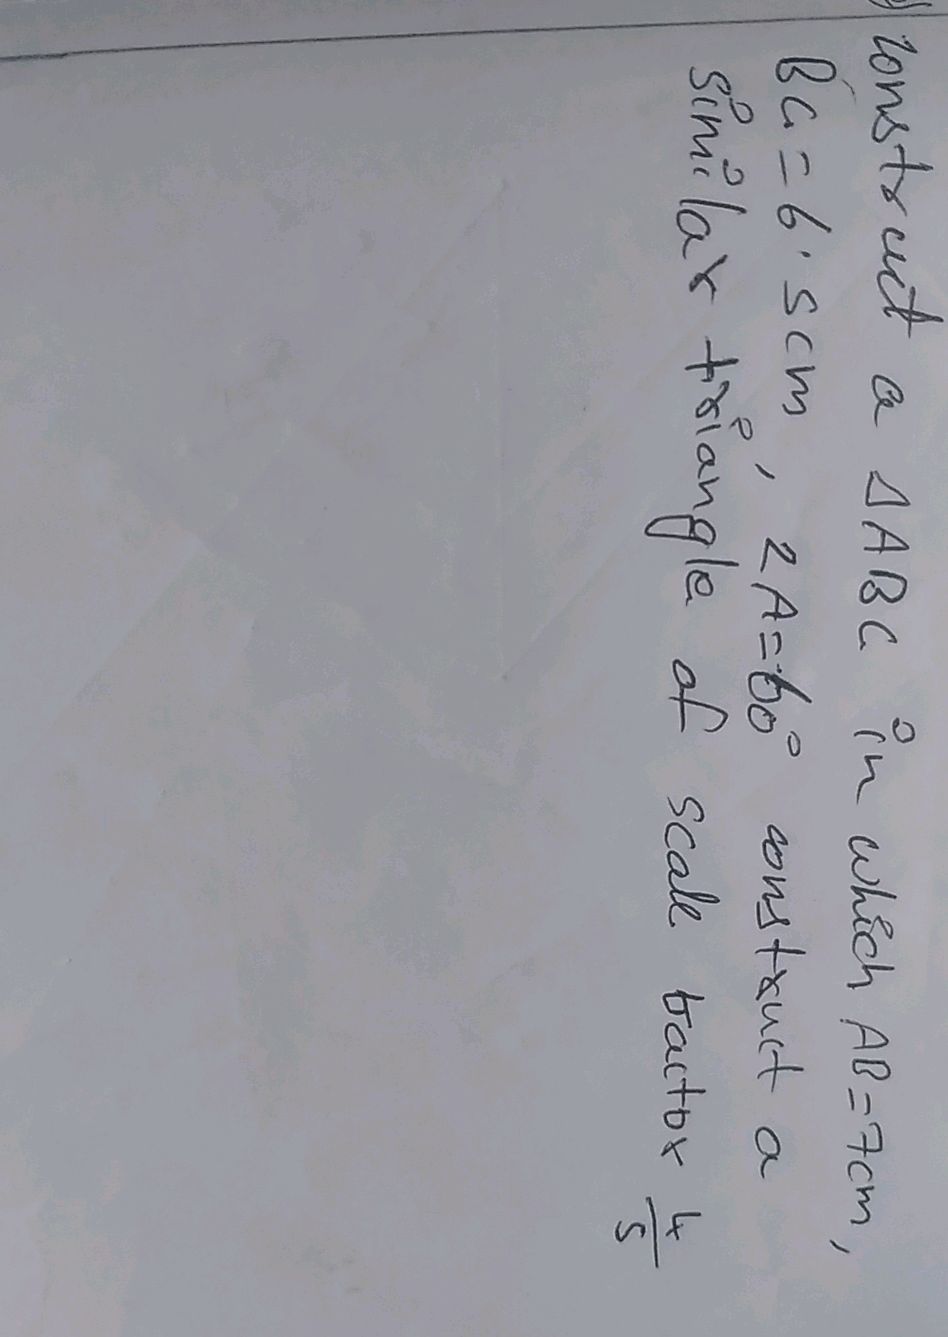 construct a ΔABC in which AB=7cm,
BC=6.5cm, ∠A=60° construct a
similar triangle of scale bactor 4/5